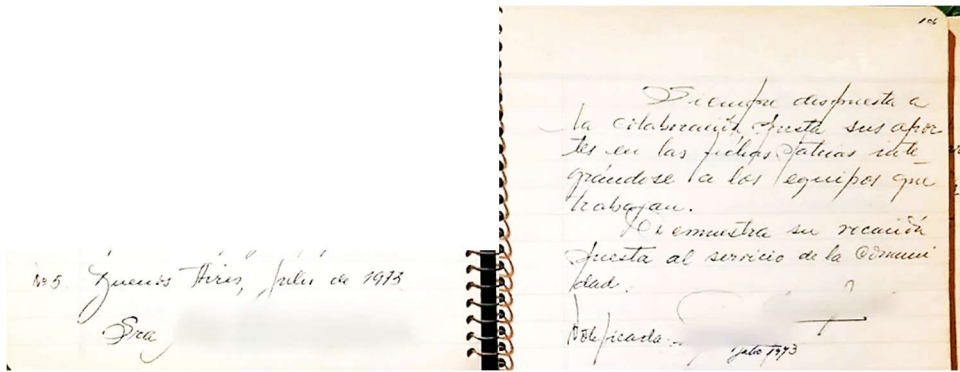 Nº 5. Buenos Aires, julio de 1973
Sra
106
Siempre dispuesta a
la colaboración, presta sus apor
tes en las fechas patrias inte
grándose a los equipos que
trabajan.
Demuestra su vocación
puesta al servicio de la Comuni
dad.
Notificada:
julio 1973